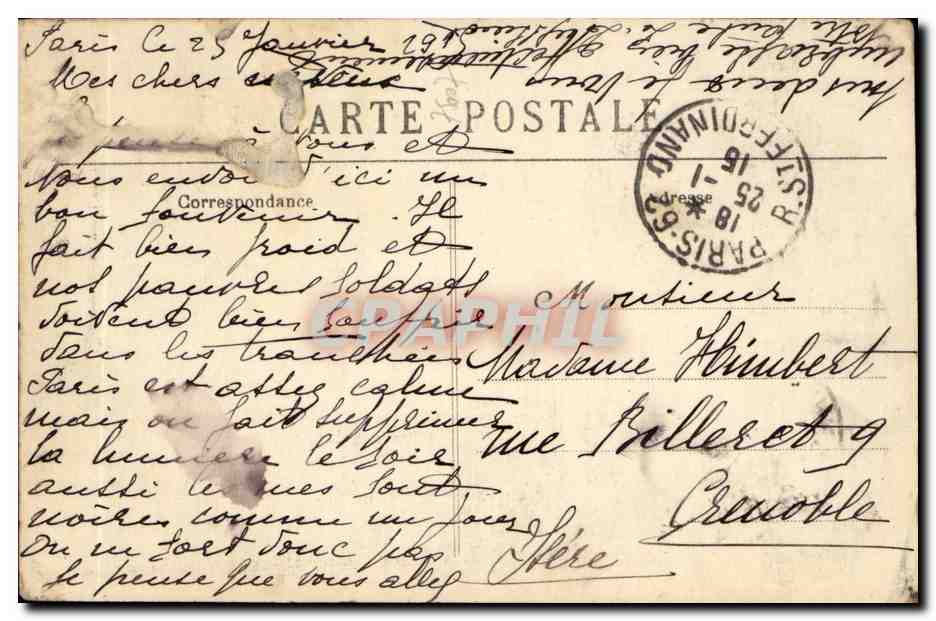 Paris le 25 Janvier
Mes chers
CARTE POSTALE
à vous et
vous envoie d'ici un
Correspondance
Adresse
bon souvenir. Il
fait bien froid et
nos pauvres soldats
doivent bien souffrir
dans les tranchées
Paris est assez calme
mais on fait supprimer
la lumière le soir
aussi les rues sont
noires comme un four
On ne sort donc pas
Je pense que vous allez
tous deux Je vous
embrasse très affectueusement
Monsieur
Madame Himbert
rue Billeret 9
Grenoble
Isère
PARIS-62 * R. ST FERDINAND
18
25 -1
15
CPAPHIL